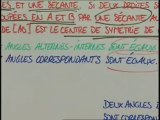 ES ET UNE SÉCANTE. SI DEUX DROITES S
OUPÉES EN A ET B PAR UNE SÉCANTE A
DE [AB] EST LE CENTRE DE SYMÉTRIE DE
ANGLES ALTERNES-INTERNES SONT ÉGAUX.
ANGLES CORRESPONDANTS SONT ÉGAUX.
DEUX ANGLES I
SONT CORRESPON